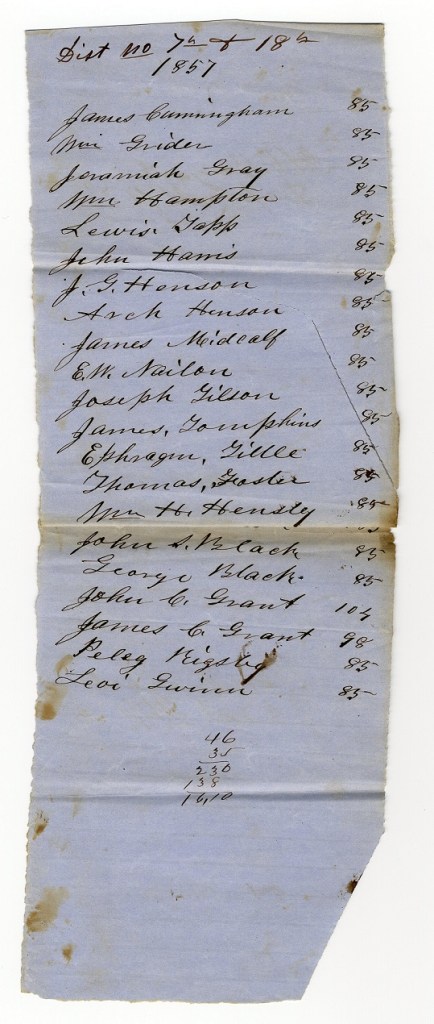 Dist no 7th & 18th
1857
James Cunningham 85
Wm Grider 85
Jeramiah Gray 85
Wm Hampton 85
Lewis. Tapp 85
John Harris 85
J. G. Henson 85
Arch Henson 85
James Midcalf 85
E.W. Nailon 85
Joseph Gilson 85
James, Tompkins 85
Ephragm, Tittle 85
Thomas, Foster 85
Wm H. Hensly 85
John S. Black 85
George Black. 85
John C. Grant 104
James C. Grant 98
Peleg Rigsby 85
Levi Gwinn 85
46
35
230
138
16,10